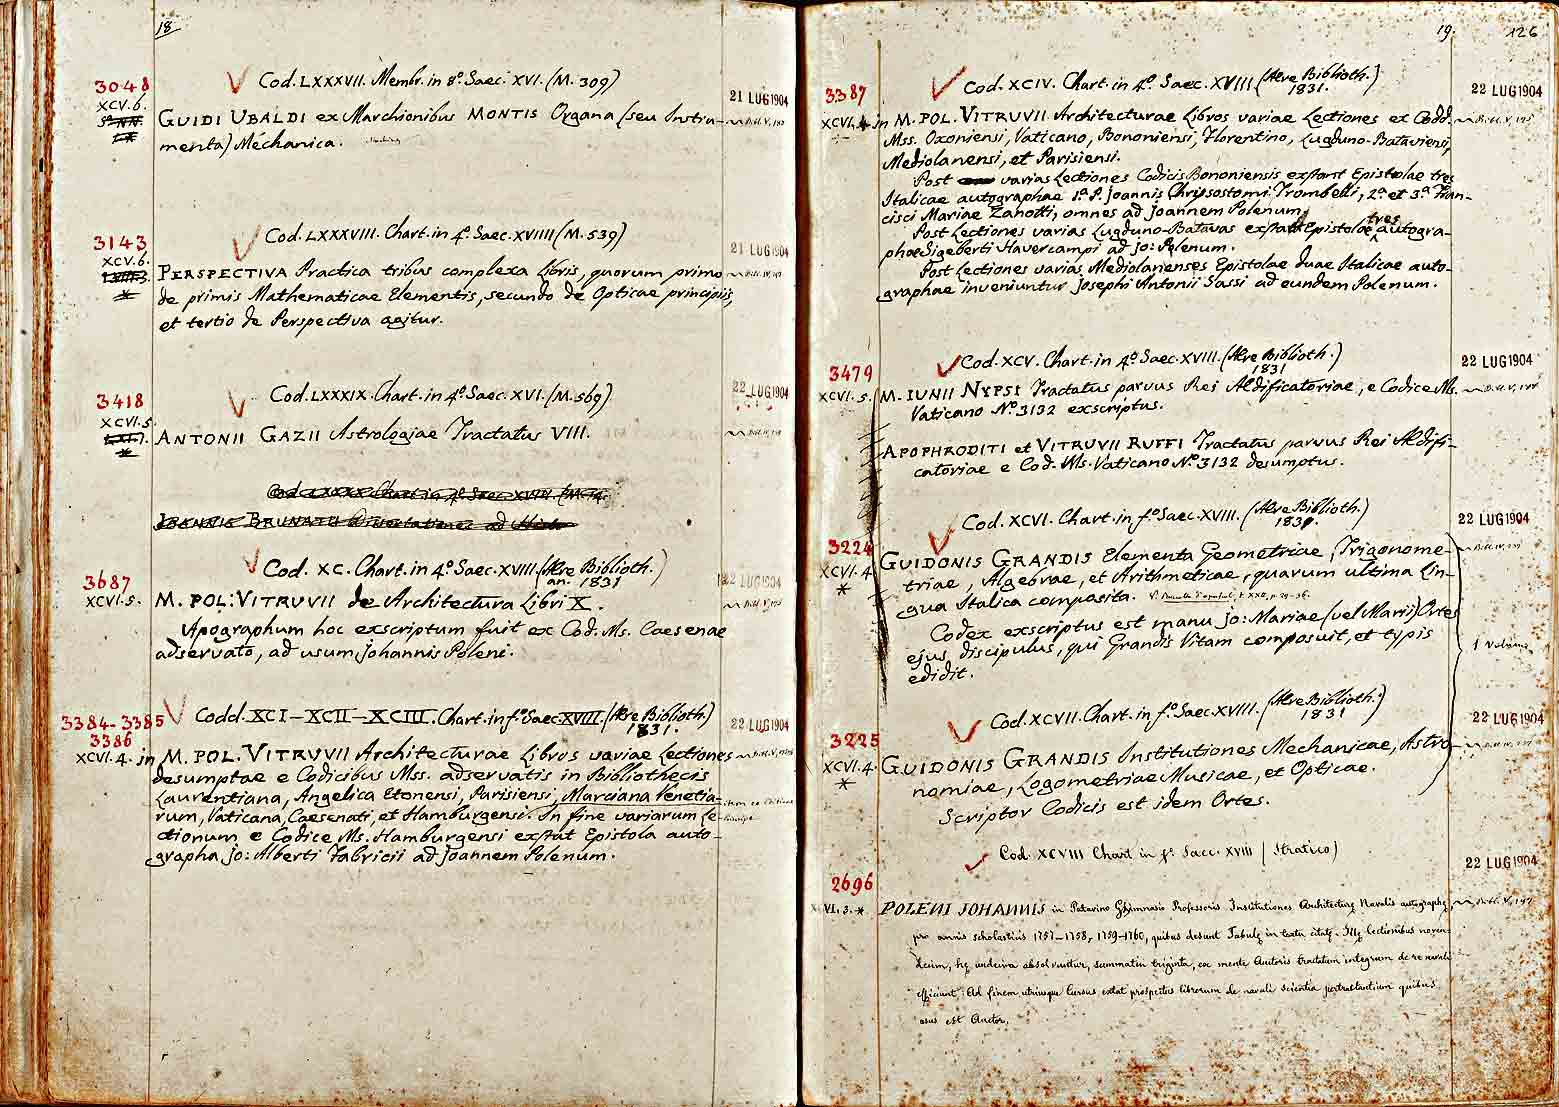 18
3048
XCV.6.
Cod. LXXXVII. Membr. in 8º. Saec. XVI. (M. 309)
21 LUG 1904
GUIDI UBALDI ex Marchionibus MONTIS Organa (seu Instru-
menta) Mechanica.
3143
XCV.6.
Cod. LXXXVIII. Chart. in 4º. Saec. XVIIII (M. 539)
21 LUG 1904
PERSPECTIVA Practica tribus complexa Libris, quorum primo
de primis Mathematicae Elementis, secundo de Opticae principiis,
et tertio de Perspectiva agitur.
3418
XCVI.5.
Cod. LXXXIX. Chart. in 4º. Saec. XVI. (M. 569)
22 LUG 1904
ANTONII GAZII Astrologiae Tractatus VIII.
Cod. LXXXX Chart. in 4º Saec. XVIII (M.
IOANNIS BRUNATII Dissertationes ad
3687
XCVI.5.
Cod. XC. Chart. in 4º. Saec. XVIII. (Aere Biblioth.)
an. 1831
22 LUG 1904
M. POL: VITRUVII de Architectura Libri X.
Apographum hoc exscriptum fuit ex Cod. Ms. Caesenae
adservato, ad usum Johannis Poleni.
3384-3385
3386
XCVI.4.
Codd. XCI-XCII-XCIII. Chart. in fº. Saec. XVIII. (Aere Biblioth.)
1831.
22 LUG 1904
in M. POL. VITRUVII Architecturae Libros variae Lectiones
desumptae e Codicibus Mss. adservatis in Bibliothecis
Laurentiana, Angelica Etonensi, Parisiensi, Marciana Venetia-
rum, Vaticana, Caesenati, et Hamburgensi. In fine variarum Le-
ctionum e Codice Ms. Hamburgensi exstat Epistola auto-
grapha Jo: Alberti Fabricii ad Joannem Polenum.
19.
126
3387
XCVI.4.
Cod. XCIV. Chart. in 4º. Saec. XVIII (Aere Biblioth.)
1831.
22 LUG 1904
in M. POL. VITRUVII Architecturae Libros variae Lectiones ex Codd.
Mss. Oxoniensi, Vaticano, Bononiensi, Florentino, Lugduno-Bataviensi,
Mediolanensi, et Parisiensi.
Post varias Lectiones Codicis Bononiensis exstant Epistolae tres
Italicae autographae 1ª. P. Joannis Chrysostomi Trombelli, 2ª. et 3ª. Fran-
cisci Mariae Zanotti, omnes ad Joannem Polenum.
Post Lectiones varias Lugduno-Batavas exstant Epistolae tres autogra-
phae Sigeberti Havercampi ad Jo: Polenum.
Post Lectiones varias Mediolanenses Epistolae duae Italicae auto-
graphae inveniuntur Josephi Antonii Sassi ad eundem Polenum.
3479
XCVI.5.
Cod. XCV. Chart. in 4º. Saec. XVIII. (Aere Biblioth.)
1831
22 LUG 1904
M. IUNII NYPSI Tractatus parvus Rei Aedificatoriae, e Codice Ms.
Vaticano Nº. 3132 exscriptus.
APOPHRODITI et VITRUVII RUFFI Tractatus parvus Rei Aedifi-
catoriae e Cod. Ms. Vaticano Nº. 3132 desumptus.
3224
XCVI.4
*
Cod. XCVI. Chart. in fº. Saec. XVIII. (Aere Biblioth.)
1831.
22 LUG 1904
GUIDONIS GRANDIS Elementa Geometriae, Trigonome-
triae, Algebrae, et Arithmeticae, quarum ultima Lin-
gua Italica composita.
Codex exscriptus est manu Jo: Mariae (vel Marii) Ortes
ejus discipulus, qui Grandis Vitam composuit, et typis
edidit.
1 Volume
3225
XCVI.4.
*
Cod. XCVII. Chart. in fº. Saec. XVIII. (Aere Biblioth.)
1831
22 LUG 1904
GUIDONIS GRANDIS Institutiones Mechanicae, Astro-
nomiae, Logometriae Musicae, et Opticae.
Scriptor Codicis est idem Ortes.
2696
XCVI.3.*
Cod. XCVIII Chart in fº. Saec. XVIII (Stratico)
22 LUG 1904
POLENI JOHANNIS in Patavino Ghimnasio Professoris Institutiones Architecturę Navalis autographę
pro annis scholasticis 1757-1758, 1759-1760, quibus desunt Tabulę in textu citatę. Illę lectionibus noven-
decim, hę undecim absolvuntur, summatim triginta, ex mente Auctoris tractatum integrum de re navali
efficiunt. Ad finem utriusque Cursus extat prospectus librorum de navali scientia pertractantium quibus
usus est Auctor.